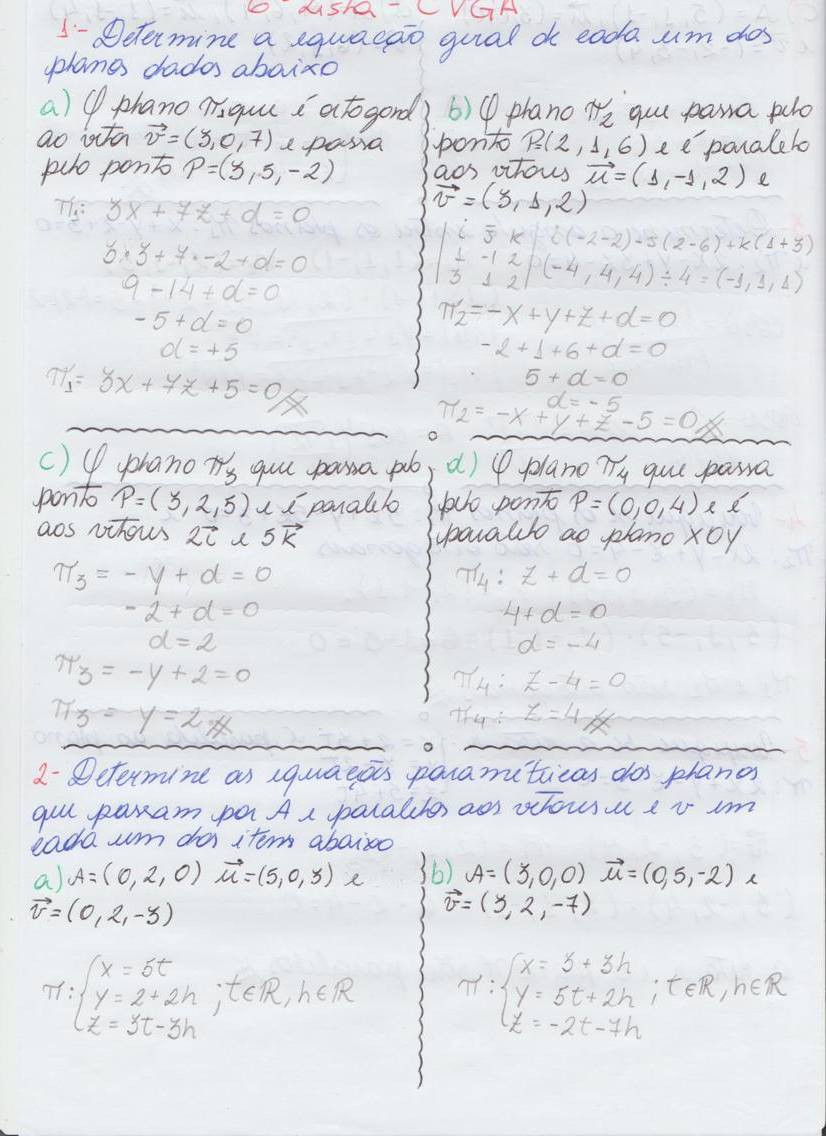 6ª Lista - CVGA
1- Determine a equação geral de cada um dos
planos dados abaixo
a) O plano π₁ que é ortogonal
ao vetor v⃗=(3,0,7) e passa
pelo ponto P=(3,5,-2)
π₁: 3x+7z+d=0
3·3+7·-2+d=0
9-14+d=0
-5+d=0
d=+5
π₁= 3x+7z+5=0
b) O plano π₂ que passa pelo
ponto P=(2,1,6) e é paralelo
aos vetores u⃗=(1,-1,2) e
v⃗=(3,1,2)
i j k i(-2-2)-j(2-6)+k(1+3)
1 -1 2
3 1 2 (-4,4,4)÷4=(-1,1,1)
π₂=-x+y+z+d=0
-2+1+6+d=0
5+d=0
d=-5
π₂=-x+y+z-5=0
c) O plano π₃ que passa pelo
ponto P=(3,2,5) e é paralelo
aos vetores 2i⃗ e 5k⃗
π₃=-y+d=0
-2+d=0
d=2
π₃=-y+2=0
π₃= y=2
d) O plano π₄ que passa
pelo ponto P=(0,0,4) e é
paralelo ao plano XOY
π₄: z+d=0
4+d=0
d=-4
π₄: z-4=0
π₄: z=4
2- Determine as equações paramétricas dos planos
que passam por A e paralelos aos vetores u e v em
cada um dos itens abaixo
a) A=(0,2,0) u⃗=(5,0,3) e
v⃗=(0,2,-3)
x=5t
π: y=2+2h ;t∈ℝ,h∈ℝ
z=3t-3h
b) A=(3,0,0) u⃗=(0,5,-2) e
v⃗=(3,2,-7)
x=3+3h
π: y=5t+2h ;t∈ℝ,h∈ℝ
z=-2t-7h